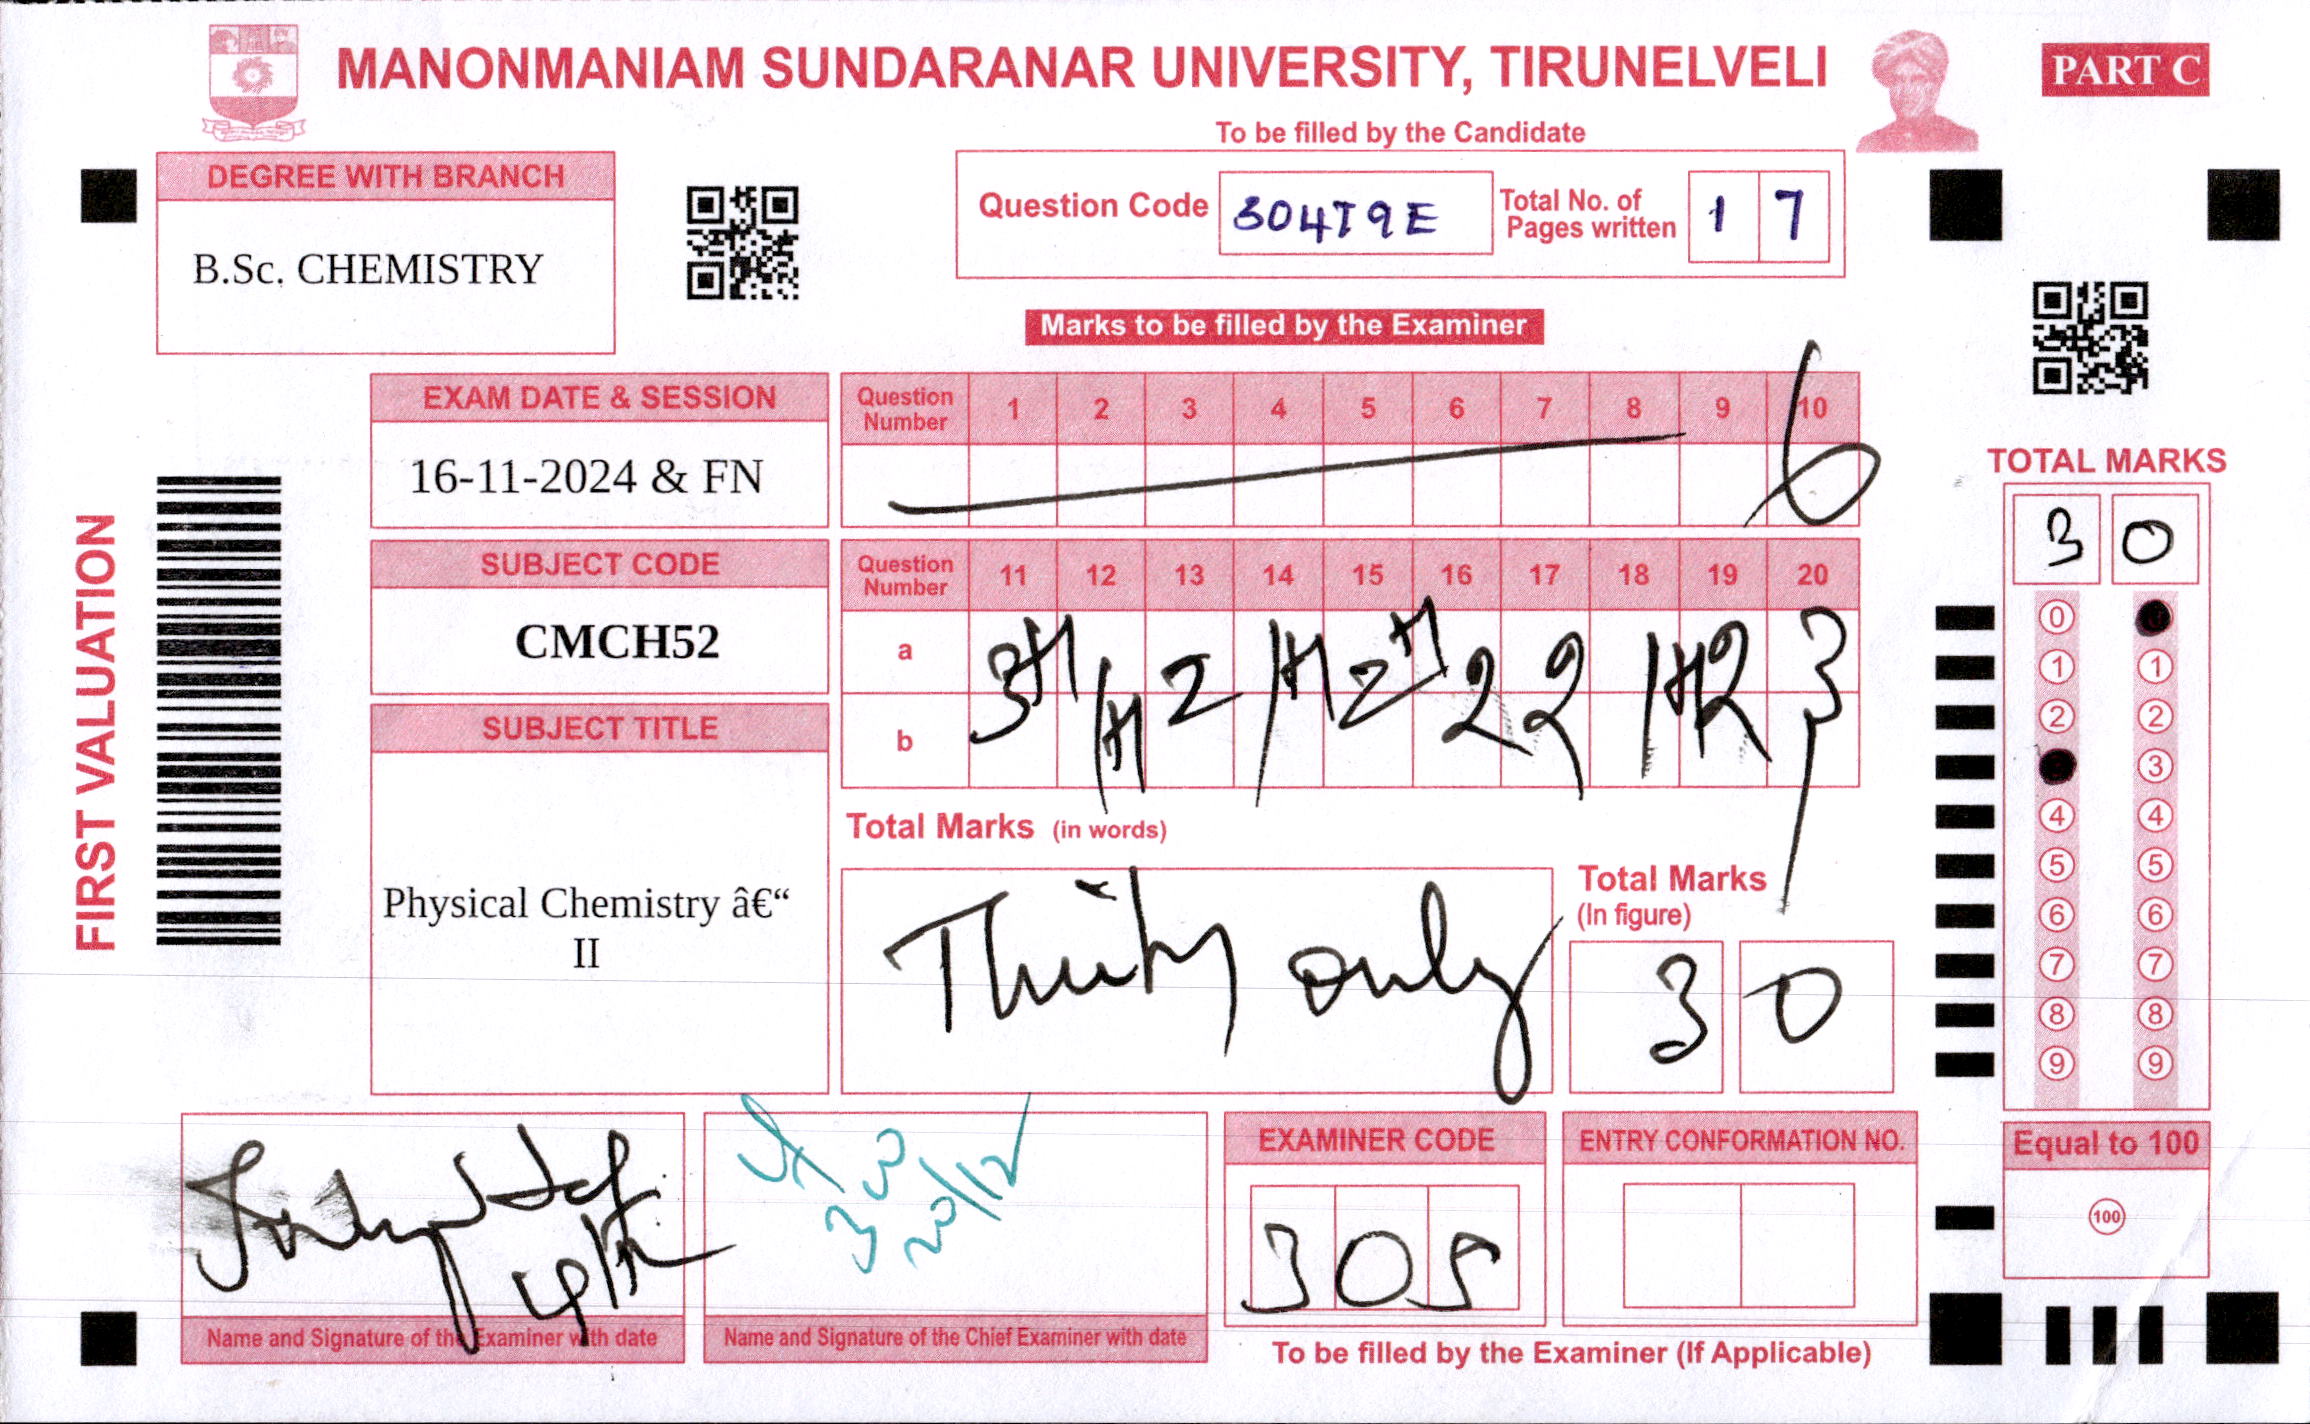 MANONMANIAM SUNDARANAR UNIVERSITY, TIRUNELVELI
PART C
To be filled by the Candidate
DEGREE WITH BRANCH
B.Sc. CHEMISTRY
Question Code 304T9E Total No. of Pages written 1 7
Marks to be filled by the Examiner
EXAM DATE & SESSION
16-11-2024 & FN
Question Number 1 2 3 4 5 6 7 8 9 10
6
SUBJECT CODE
CMCH52
Question Number 11 12 13 14 15 16 17 18 19 20
a
b
SUBJECT TITLE
Physical Chemistry â€“
II
FIRST VALUATION
Total Marks (in words)
Thirty only
Total Marks
(In figure)
3 0
TOTAL MARKS
3 0
0
1 1
2 2
3
4 4
5 5
6 6
7 7
8 8
9 9
Equal to 100
100
Name and Signature of the Examiner with date
30
20/12
Name and Signature of the Chief Examiner with date
EXAMINER CODE
305
ENTRY CONFORMATION NO.
To be filled by the Examiner (If Applicable)